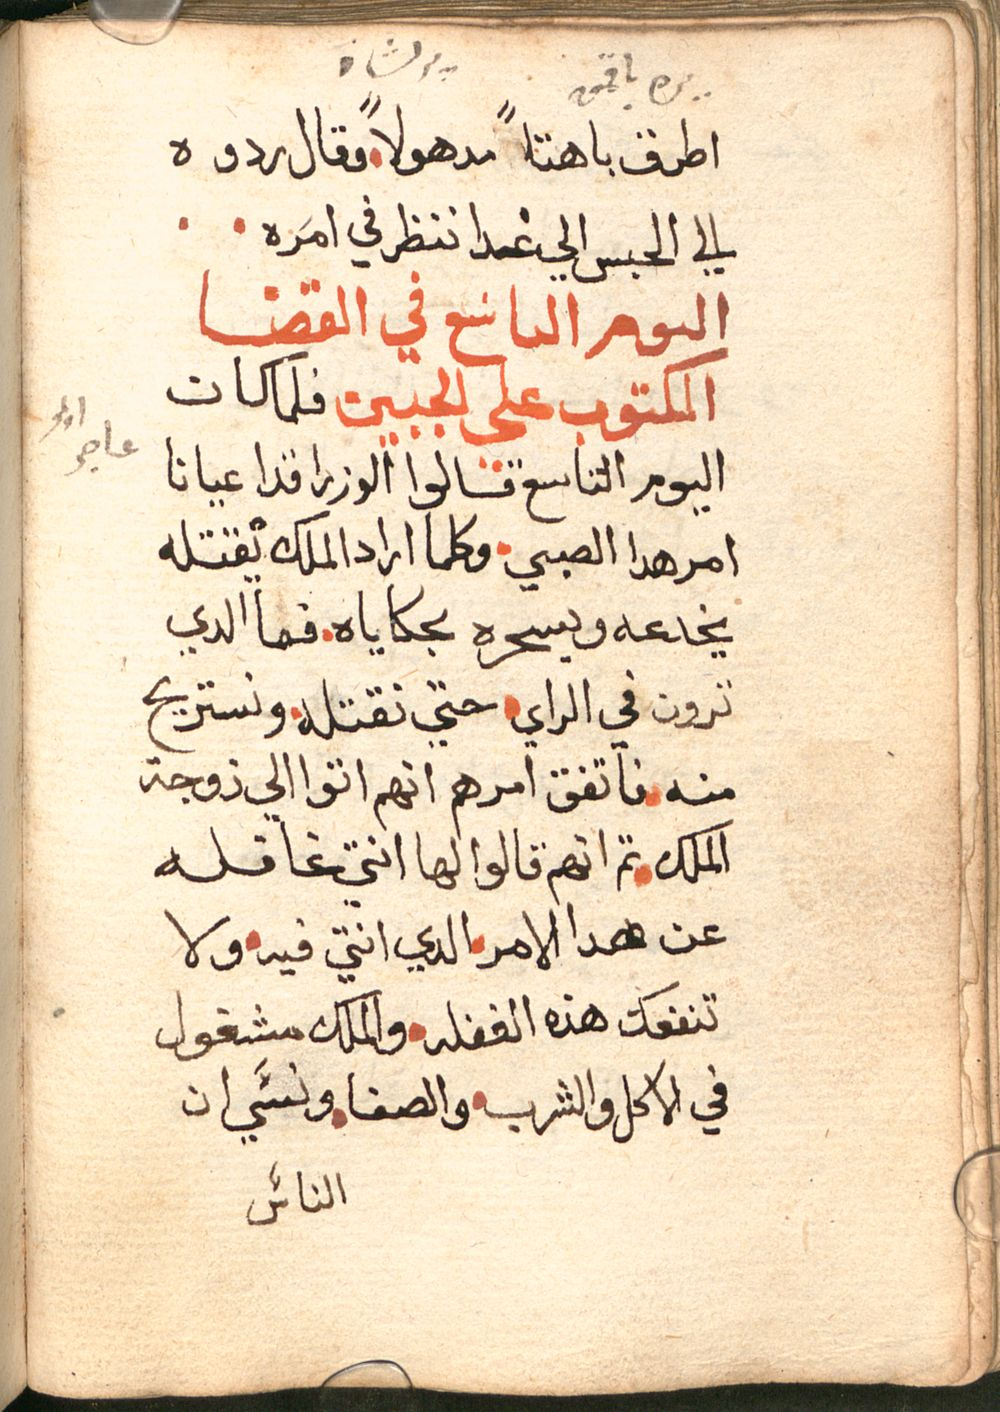 اطرق باهتاً مدهولاً وقال ردوه
الي الحبس الي غدا ننظر في امره
اليوم التاسع في القضا
المكتوب علي الجبين فلما كان
اليوم التاسع قالوا الوزرا قد اعيانا
امر هدا الصبي وكلما اراد الملك يقتله
يخدعه ويسحره بحكاياه فما الدي
ترون في الراي حتي نقتله ونستريح
منه فاتفق امرهم انهم اتوا الي زوجة
الملك تم انهم قالوا لها انتي غافله
عن هدا الامر الدي انتي فيه ولا
تنفعك هذه الغفله والملك مشغول
في الاكل والشرب والصفا ونسي ان
الناس